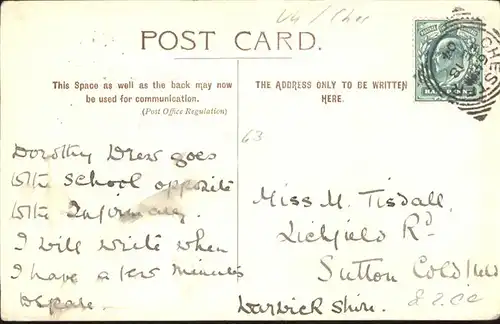 V4/Ches
POST CARD.
This Space as well as the back may now
be used for communication.
(Post Office Regulation)
THE ADDRESS ONLY TO BE WRITTEN
HERE.
63
Dorothy Drew goes
to the School opposite
to the Infirmary.
I will write when
I have a few minutes
to spare.
Miss M. Tisdall,
Lichfield Rd
Sutton Coldfield
Warwickshire.
CHEST
HALFPENNY